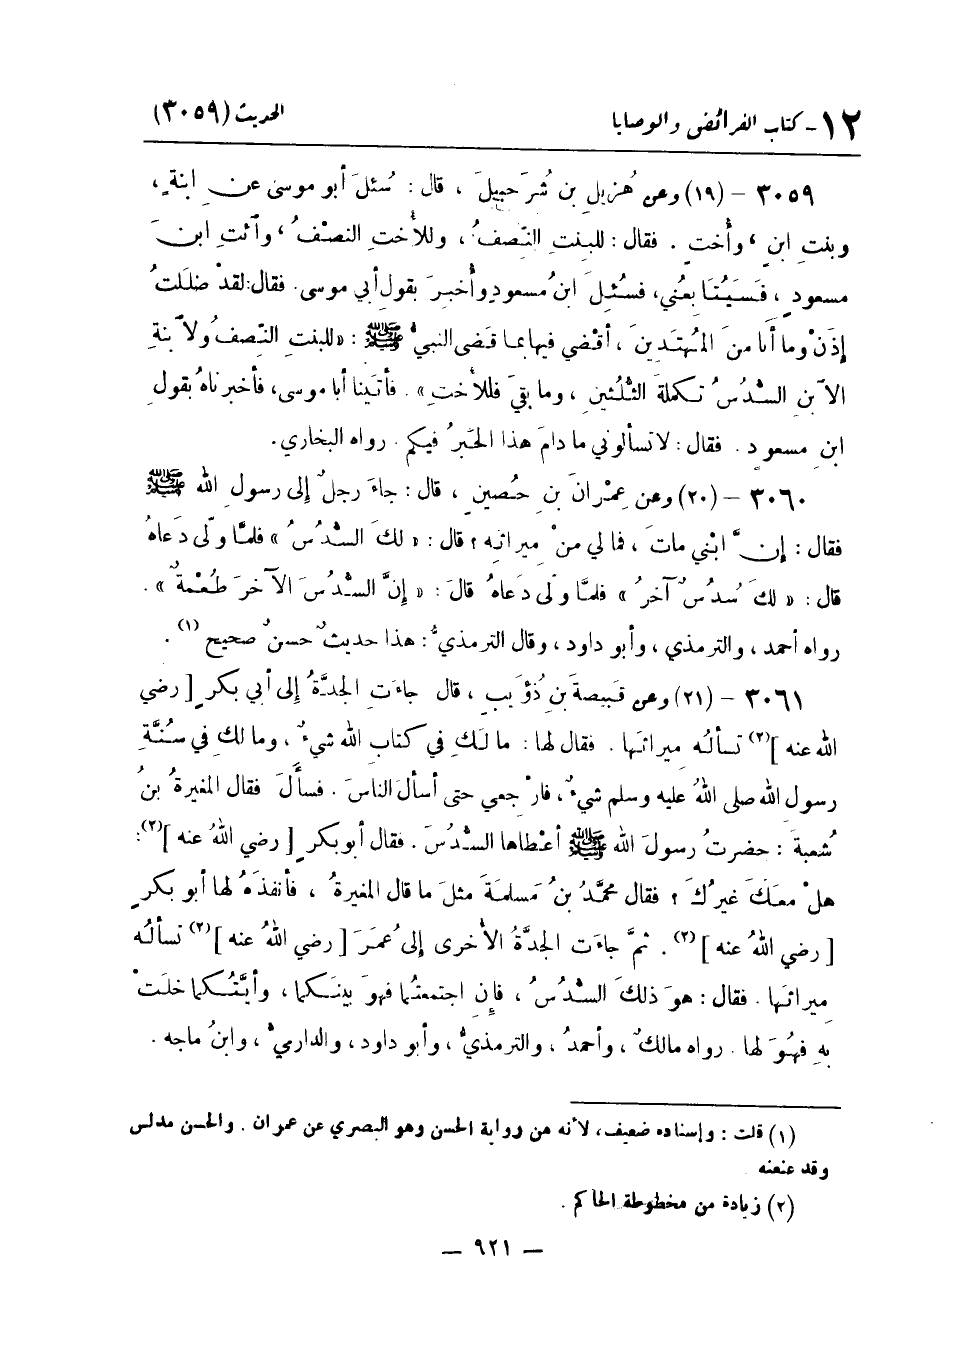 ١٢ - كتاب الفرائض والوصايا
الحديث (٣٠٥٩)
٣٠٥٩ – (١٩) وعن هُزيلِ بنِ شُرَحبيلَ ، قال : سُئلَ أبو موسى عن ابنةٍ ،
وبنتِ ابنٍ ، وأُختٍ . فقال : للبنتِ النِّصفُ ، وللأُختِ النصْفُ ، وآئتِ ابنَ
مسعودٍ ، فَسَيُتَابِعُني ، فسُئِلَ ابنُ مسعودٍ وأُخبِرَ بقولِ أبي موسى . فقال : لقدْ ضلَلتُ
إِذَنْ وما أنا منَ المُهتَدينَ ، أقْضي فيها بما قضى النبيُّ ﷺ : « للبنتِ النصفُ ولابنةِ
الابنِ السُّدُسُ تكملةَ الثلُثينِ ، وما بقيَ فللأُختِ » . فأتَينا أبا موسى ، فأخبرناهُ بقولِ
ابنِ مسعودٍ . فقال : لا تسألوني ما دامَ هذا الحَبْرُ فيكم . رواه البخاري .
٣٠٦٠ – (٢٠) وعن عِمْرانَ بنِ حُصينٍ ، قال : جاءَ رجلٌ إلى رسولِ اللهِ ﷺ
فقال : إنَّ ابْني ماتَ ، فما لي منْ ميراثِه ؟ قال : « لكَ السُّدُسُ » فلمَّا ولَّى دَعاهُ
قال : « لكَ سُدسٌ آخرُ » فلمَّا ولَّى دَعاهُ قالَ : « إنَّ السُّدُسَ الآخرَ طُعْمةٌ » .
رواه أحمد ، والترمذي ، وأبو داود ، وقال الترمذيُّ : هذا حديثٌ حسنٌ صحيح (١) .
٣٠٦١ – (٢١) وعن قَبيصةَ بنِ ذُؤَيبٍ ، قال جاءَتِ الجدَّةُ إلى أبي بكرٍ [ رضي
اللهُ عنه ](٢) تسألُه ميراثَها . فقال لها : ما لَكِ في كتابِ اللهِ شيءٌ ، وما لكِ في سُنَّةِ
رسولِ اللهِ صلى اللهُ عليه وسلم شيءٌ ، فارْجعي حتى أسألَ الناسَ . فسألَ فقال المغيرةُ بنُ
شُعبةَ : حضرتُ رسولَ اللهِ ﷺ أعْطاها السُّدُسَ . فقال أبو بكرٍ [ رضي اللهُ عنه ](٢) :
هلْ معَكَ غيرُكَ ؟ فقال محمَّدُ بنُ مَسلمَةَ مثلَ ما قال المغيرةُ ، فأنفذَهُ لها أبو بكرٍ
[ رضي اللهُ عنه ](٢) . ثمَّ جاءَت الجدَّةُ الأُخرى إلى عُمَرَ [ رضي اللهُ عنه ](٢) تسألُه
ميراثَها . فقال : هوَ ذلكَ السُّدُسُ ، فإنِ اجتمعتُما فهوَ بينَكما ، وأيَّتُكما خلَتْ
بهِ فهُوَ لها . رواه مالكٌ ، وأحمدُ ، والترمذيُّ ، وأبو داود ، والدارميُّ ، وابنُ ماجه .
(١) قلت : وإسناده ضعيف ، لأنه من رواية الحسن وهو البصري عن عمران . والحسن مدلس
وقد عنعنه
(٢) زيادة من مخطوطة الحاكم .
– ٩٢١ –